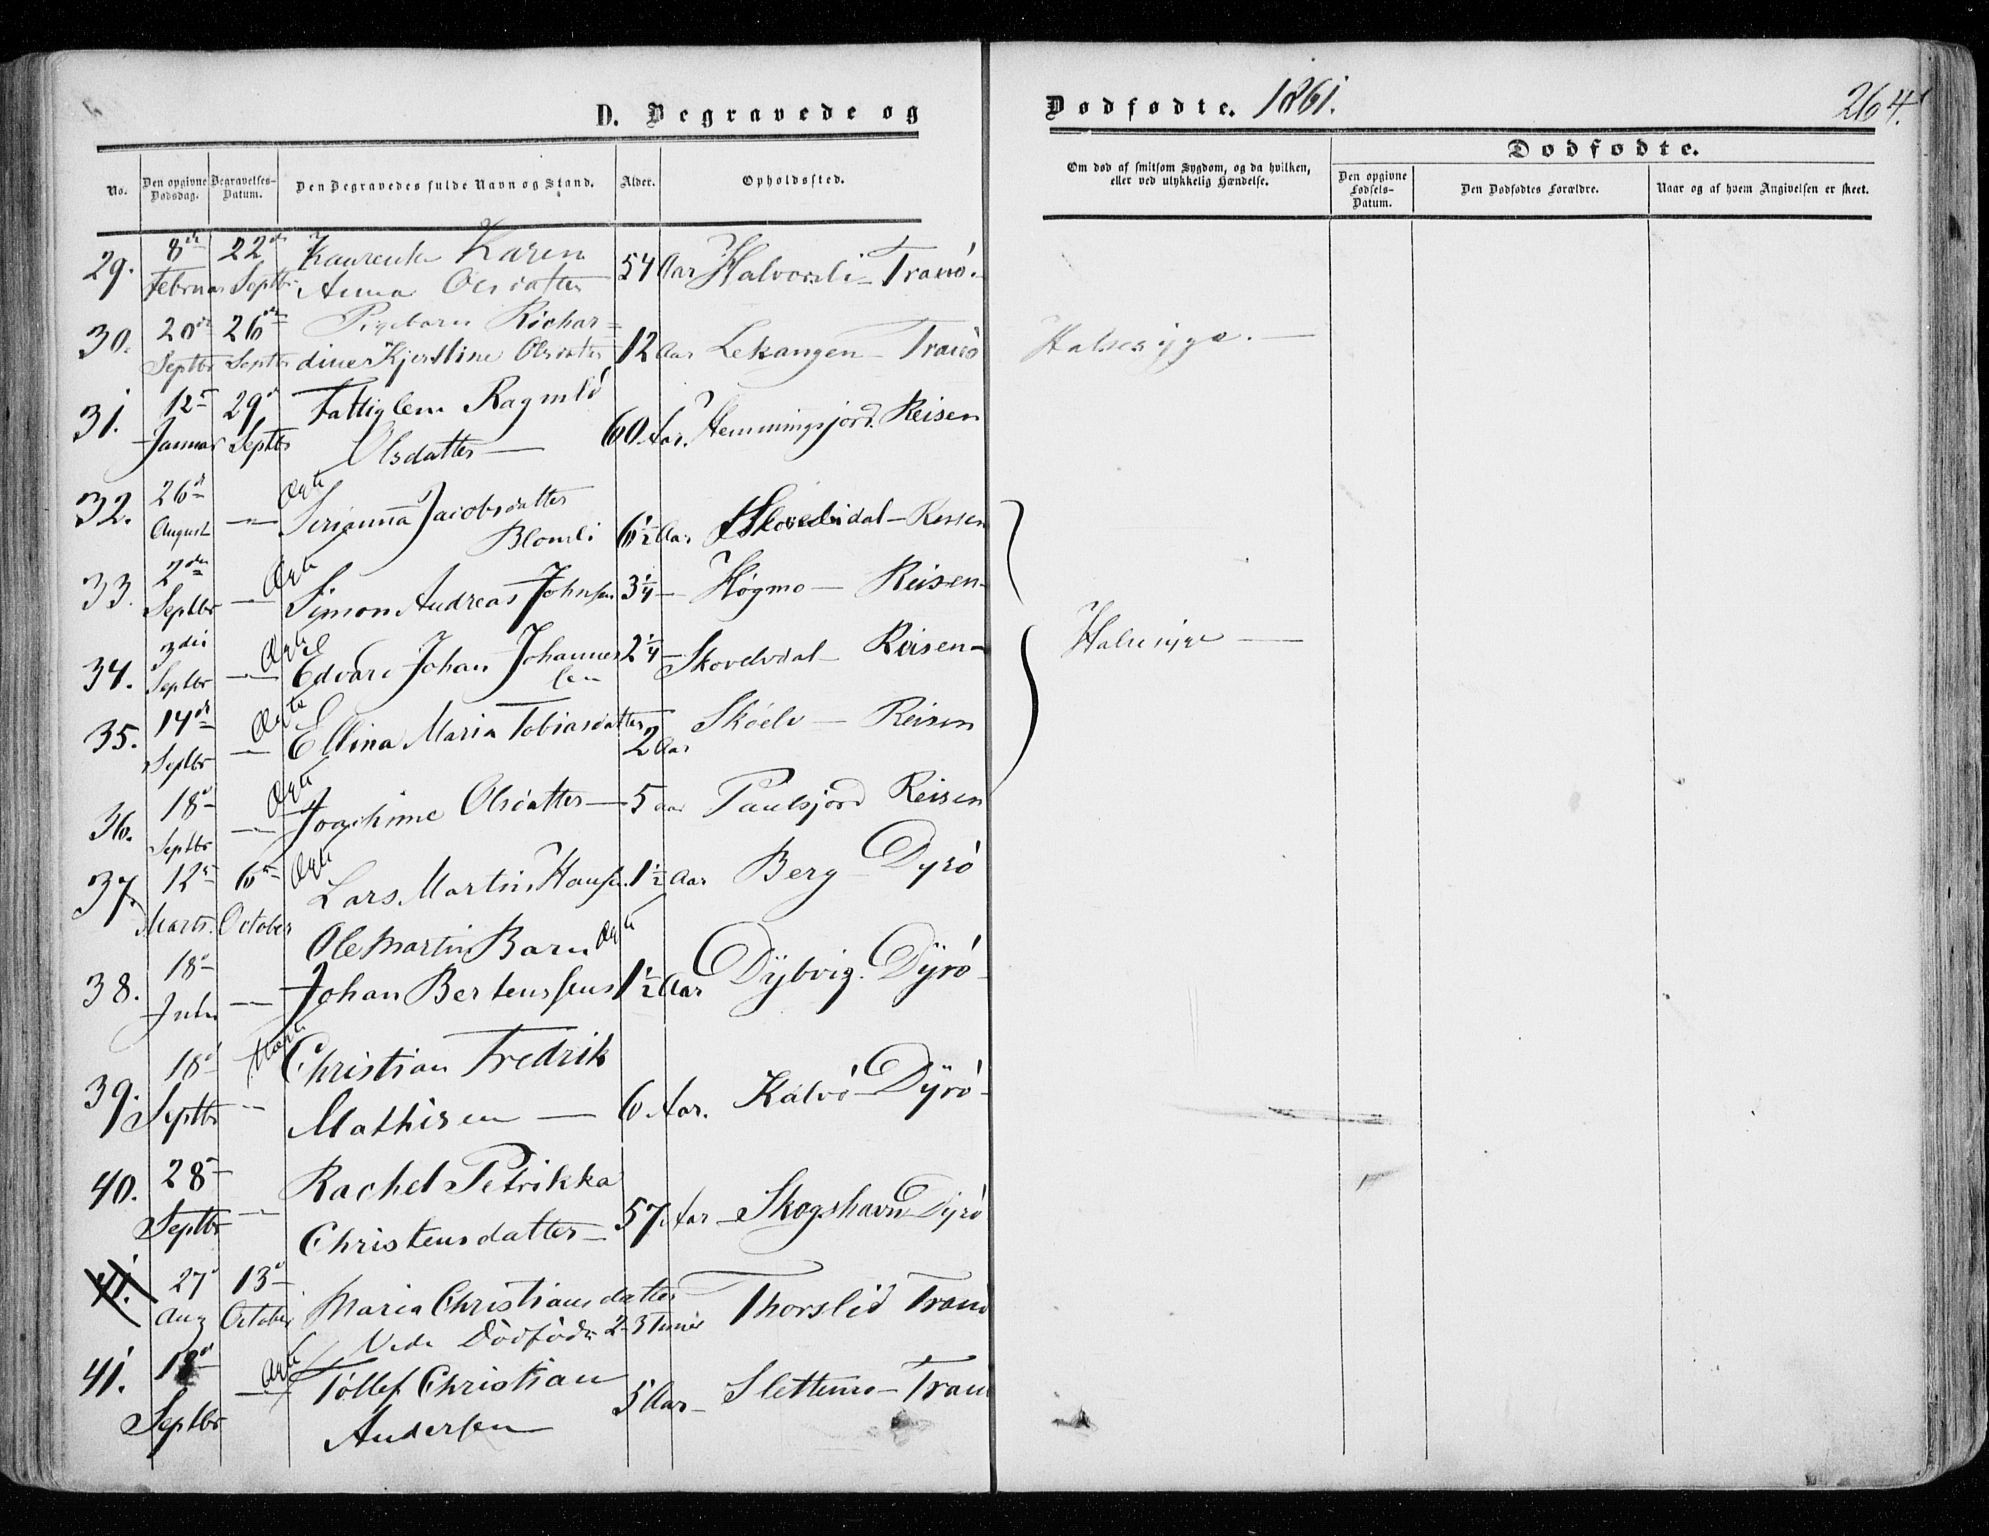 D. Begravede og
Dødfødte. 1861.
264.
No.
Den opgivne Dødsdag.
Begravelses-Datum.
Den Begravedes fulde Navn og Stand.
Alder.
Opholdssted.
Om død af smitsom Sygdom, og da hvilken,
eller ved ulykkelig Hændelse.
Dødfødte.
Den opgivne Fødsels-Datum.
Den Dødfødtes Forældre.
Naar og af hvem Angivelsen er skeet.
29. 8de 22de Karen 54 Aar Halvorsli - Tranö.
Februar Septbr Anna Olsdatter
30. 20de 26de Pigebarn Richar=
Septbr Septbr dine Kjerstine Olsdatter 12 Aar Lekangen - Tranö Halsesyge. —
31. 12te 29de Fattiglem Ragnild
Januar Septbr Olsdatter — 60 Aar. Hemmingsjord. Reisen
32. 26de Ægte
August — Serianna Jacobsdatter
Blomli 6½ Aar Skovelvdal - Reisen
33. 2den Ægte
Septbr — Simon Andreas Johnsen 3¼ — Högmo — Reisen -
34. 3die Ægte
Septbr — Edvard Johan Johannes 2¼ — Skovelvdal - Reisen -
sen
Halsesyge —
35. 14de Ægte
Septbr — Ellina Maria Tobiasdatter 2 Aar Sköelv — Reisen
36. 18de Ægte
Septbr — Joachime Olsdatter — 5 Aar Paulsjord Reisen
37. 12te 6te Ægte
Marts. October Lars Martin Hansen 1½ Aar Berg - Dyrö
Ole Martin Barn Ægte
38. 18de
— Johan Bertenssens 1½ Aar Dÿbvig. Dÿrö -
39. 18de Christian Fredrik
Septbr — Mathisen — 6 Aar. Kalvö - Dÿrö -
40. 28de Rachel Petrikka
Septbr — Christensdatter — 57 Aar - Skogshavn Dyrö
41. 27de 13de
Aug October Maria Christiansdatter
Dödfödt 2-3 Timer Thorslid Tranö
41. 18de Ægte
Septbr — Tollef Christian
Andersen 5 Aar - Slettmo - Tranö